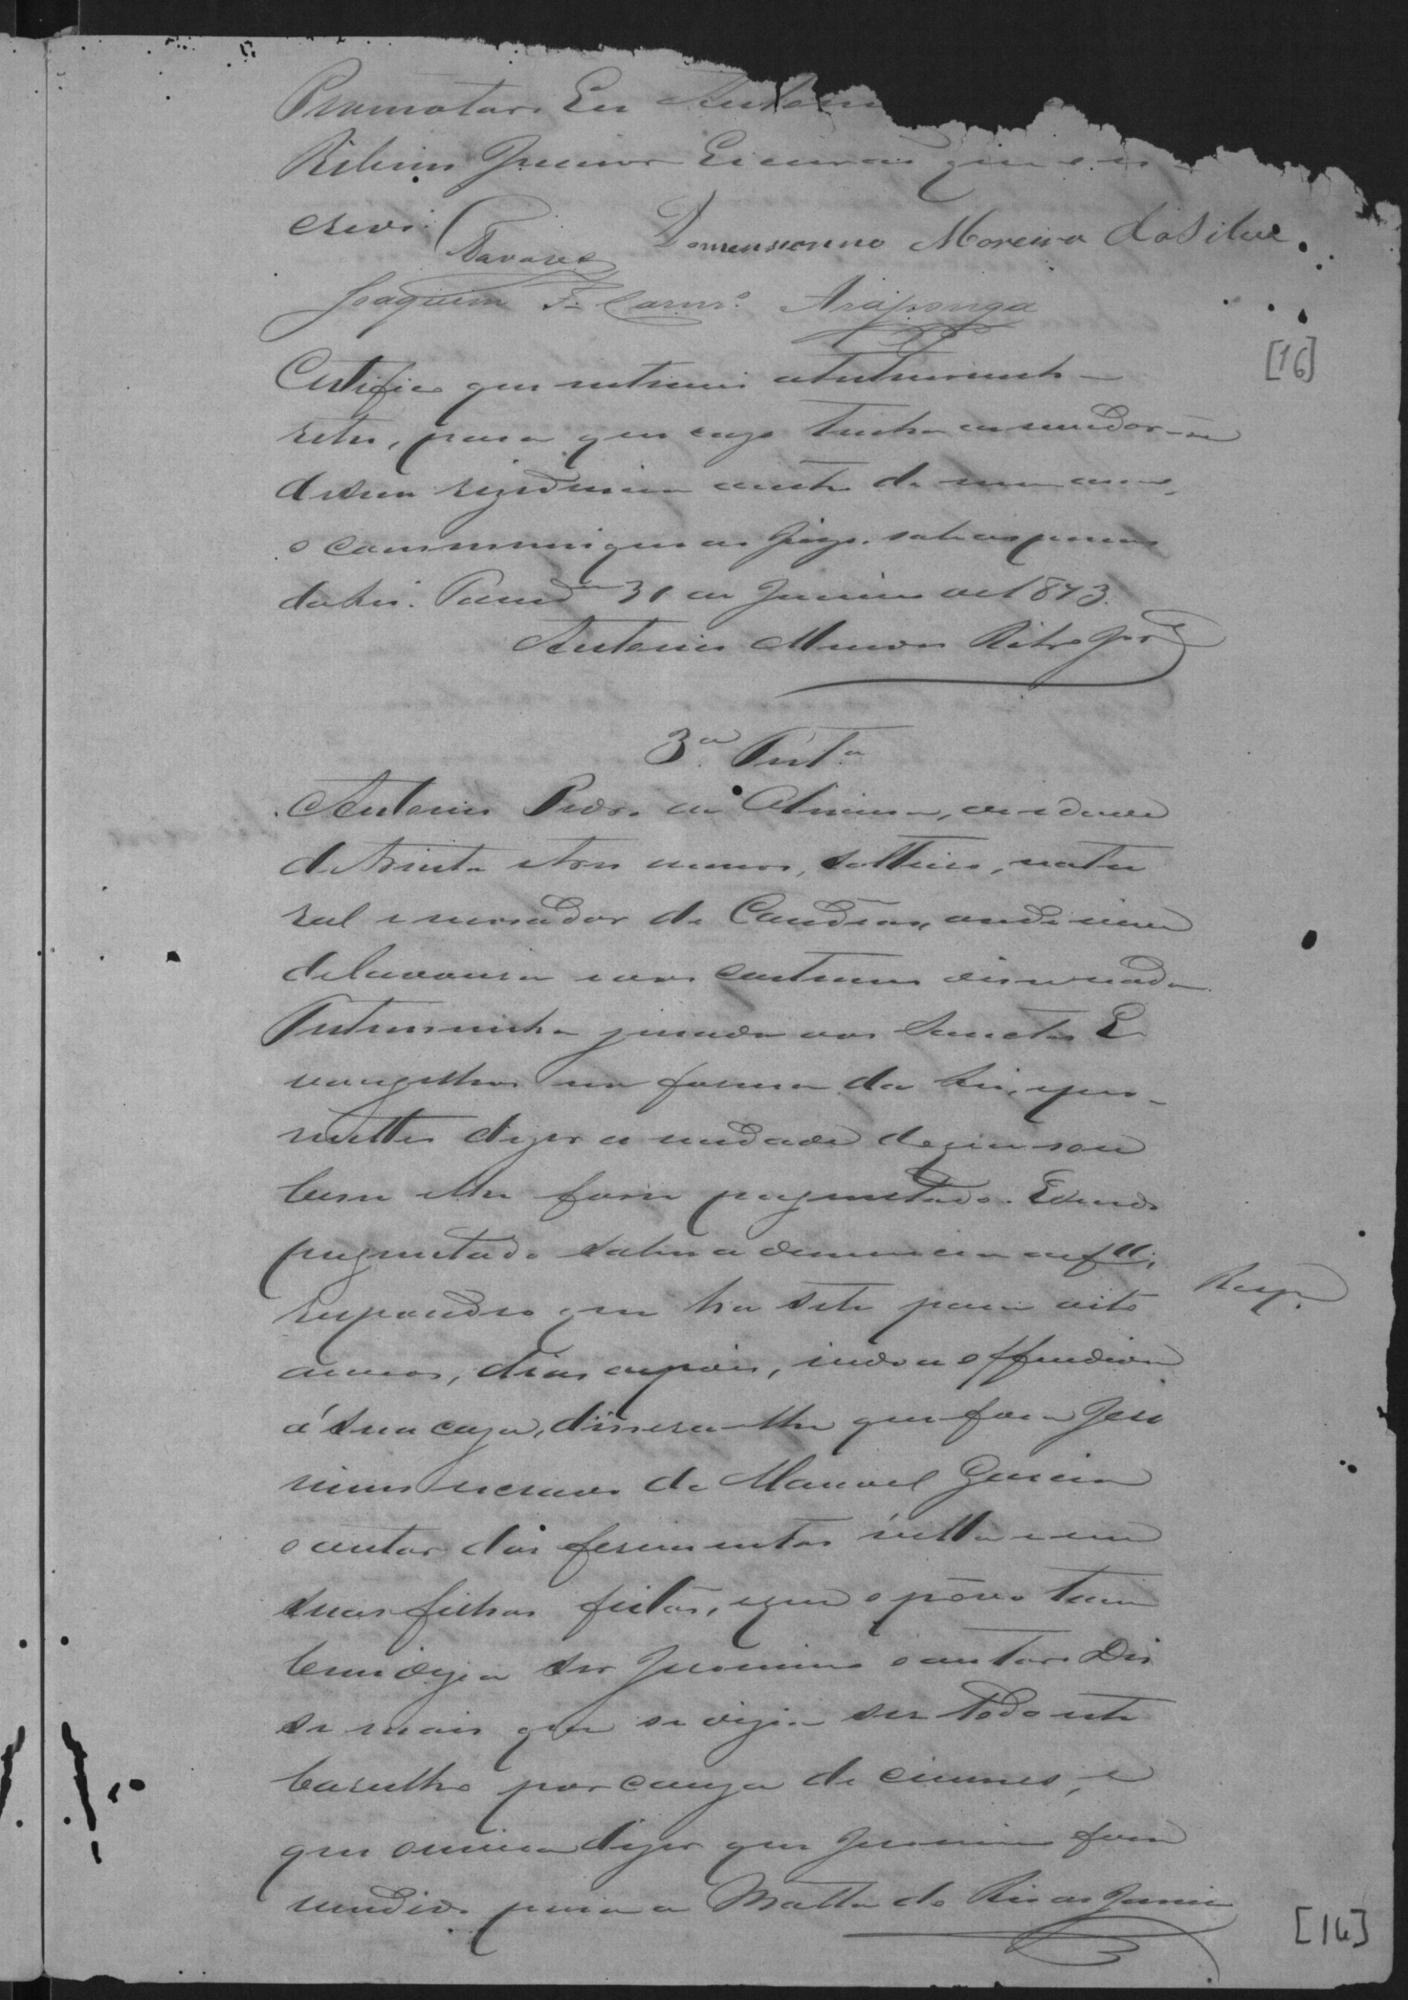 Promotor. Eu Antonio
Ribeiro Junior Escrivão que o es
crevi.
Tavares Domensionno Moreira da Silva
Joaquim F. Carnr.º Araponga
[16]
Certifico que intimei a testimunha
retro, para que cazo tenha de mudar-se
de sua rezidencia dentro de um anno,
o communique ao Juizo sob as penas
da lei. 31 de Janeiro de 1873.
Antonio Ribr.o Jor
3.ª Test.ª
Antonio Pedro de Oliveira, de idade
de trinta e tres annos, solteiro, natu
ral e morador de Caudeas, onde vive
de lavoura, aos costumes disse nada
Testemunha jurada aos Sanctos E
vangelhos na forma da lei, e pro-
metteu dizer a verdade do que sou
besse e lhe fosse preguntado. E sendo
preguntado sobre a denuncia de fl.,
respondeo que ha sete para oito
Resp.
annos, dias depois, indo a offendida
á sua caza, dissera-lhe que fora Jero
nimo escravo de Manoel Garcia
o autor dos ferimentos nella e em
suas filhas feitos, e que o povo tam
bem dizia ser Jeronimo o autor. Dis
se mais que se dizia ser todo este
barulho por cauza de ciumes, e
que ouvira dizer que Jeronimo fora
vendido para a Matta do Rio de Janeiro
[16]